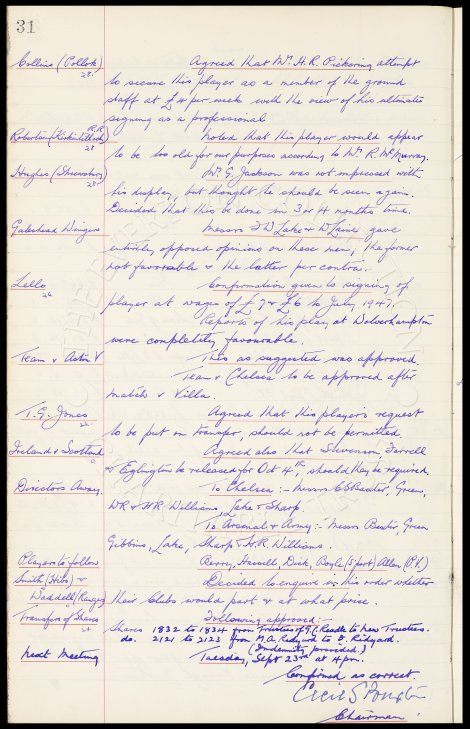 31
Collins (Pollok) Agreed that Mr. H.R. Pickering attempt
28.
to secure this player as a member of the ground
staff at £4 per week with the view of his ultimate
signing as a professional
Robertson (Kirkintilloch R.R.) noted that this player would appear
28
to be too old for our purposes according to Mr. R. McMurray.
Hughes (Shrewsbury) Mr. G. Jackson was not impressed with
28.
his display, but thought he should be seen again.
Decided that this be done in 3 or 4 months time.
Gateshead Wingers Messrs Lake & gave
entirely opposed opinions on these men, the former
not favorable & the latter per contra.
Lello Confirmation given to signing of
26
player at wages of £7 & £6 to July 1947.
Reports of his play at Wolverhampton
were completely favourable.
Team v Aston V This as suggested was approved
Team v Chelsea to be approved after
match v Villa.
T.G. Jones Agreed that this player's request
22.
to be put on transfer, should not be permitted
Ireland v Scotland Agreed also that Stevenson, Farrell
& Eglington be released for Oct 4th, should they be required,
Directors Away. To Chelsea :- Messrs C.S. Baxter, Green,
W.R. & H.R. Williams, Lake & Sharp.
To Arsenal & Army :- Messrs Baxter, Green
Gibbins, Lake, Sharp & H.R. Williams.
Players to follow Berry, Hassell, Dick, Boyle (S'port) Allen (P.V.)
Smith (Hibs) & Decided to enquire in this order whether
Waddell (Rangers) their Clubs would part & at what price.
Transfers of Shares Following approved :-
24
Shares 1832 to 1834 from Trustees of T.C. Reade to new Trustees.
do. 2121 to 2123 from M.A. Ridyard to F. Ridyard.
(Indemnity provided.)
next Meeting Tuesday, Sept 23rd at 4 pm.
Confirmed as correct.
Cecil S Baxter
Chairman.